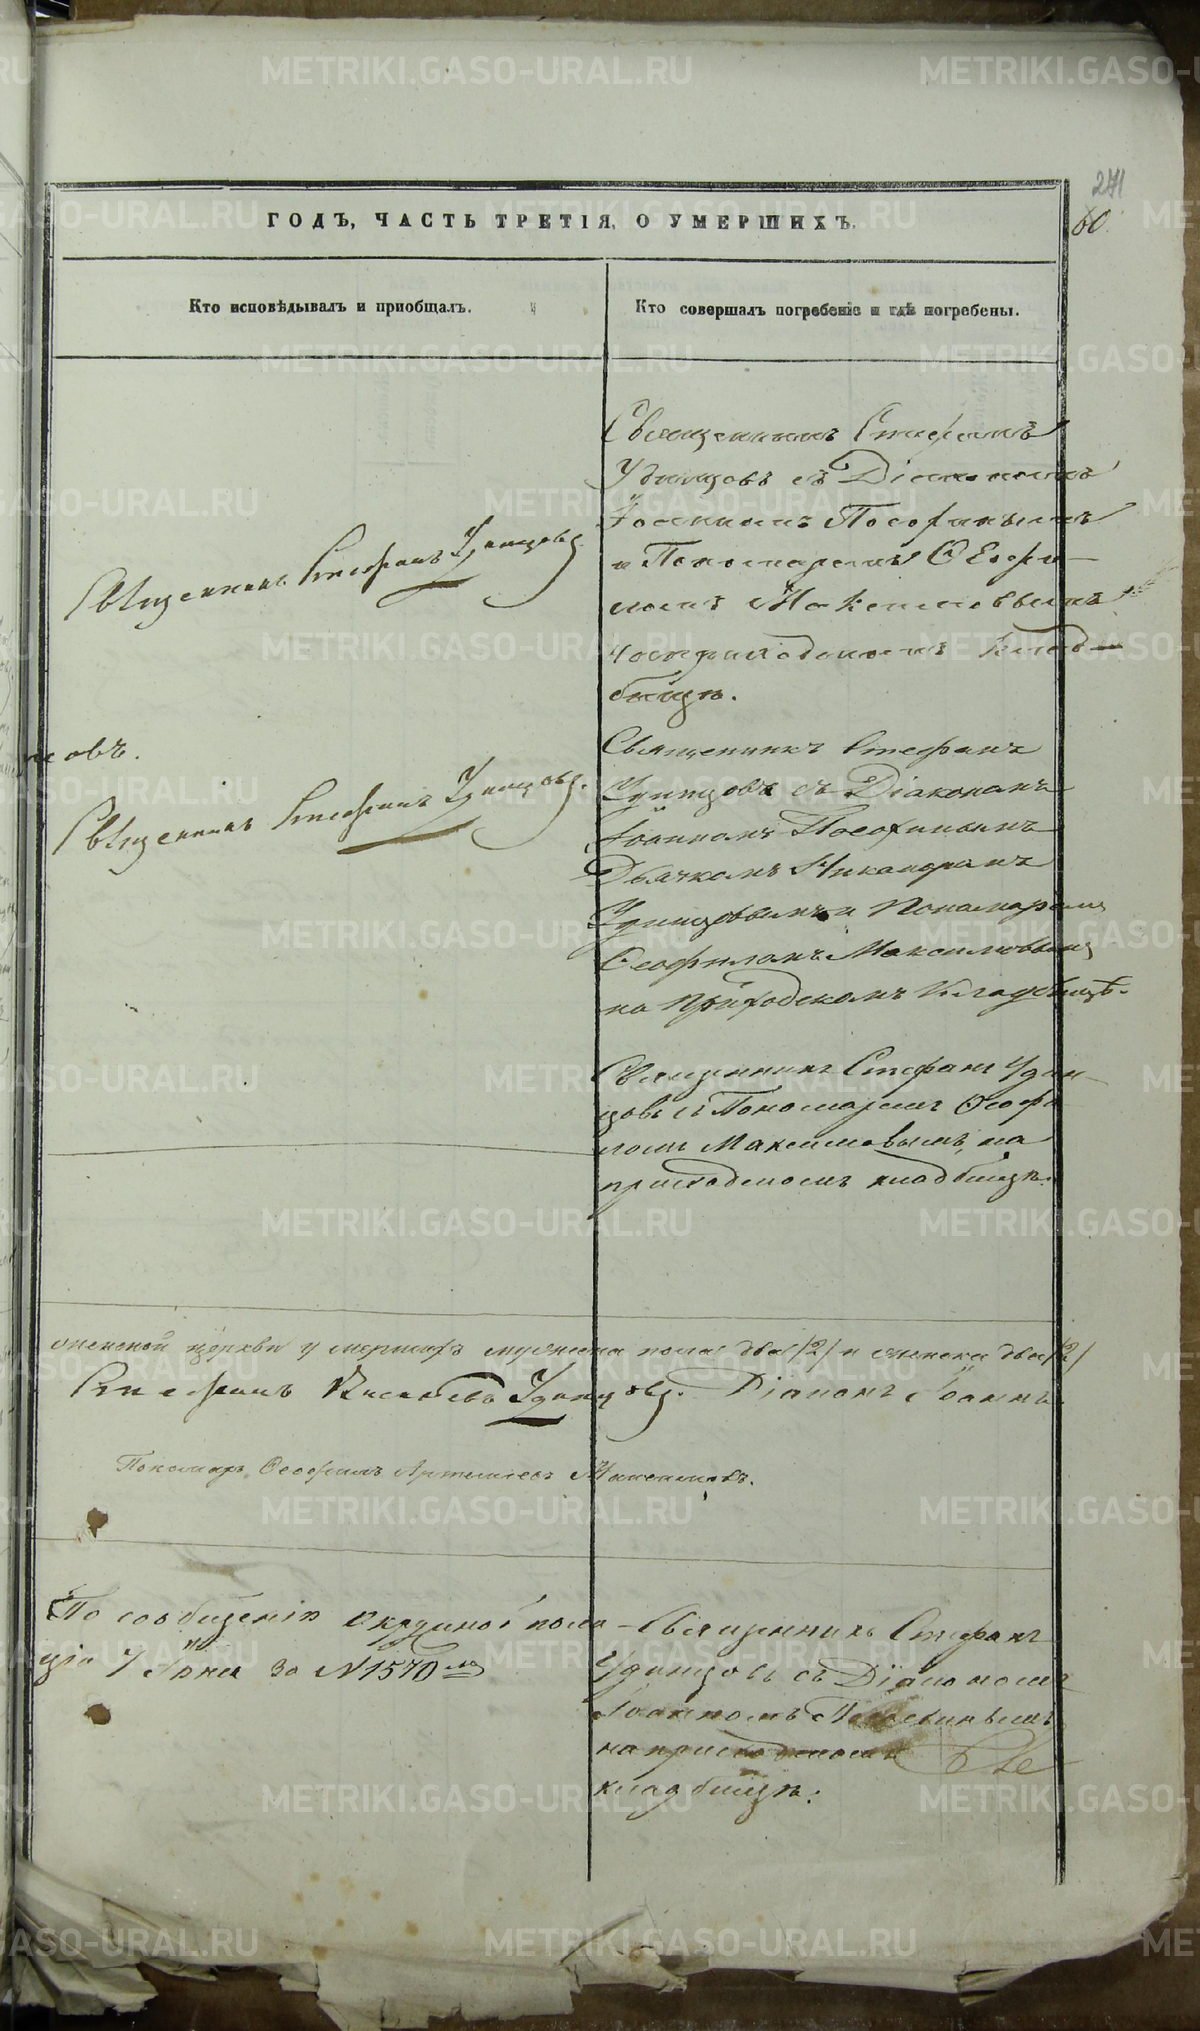 271
60.
ГОДЪ, ЧАСТЬ ТРЕТІЯ, О УМЕРШИХЪ.
Кто исповѣдывалъ и приобщалъ.
Кто совершалъ погребеніе и гдѣ погребены.
Священникъ Стефанъ Удинцовъ.
Священникъ Стефанъ
Удинцовъ съ Діакономъ
Іоанномъ
и Пономаремъ Ѳеофи-
ломъ Максимовымъ
на приходскомъ клад-
бищѣ.
совъ.
Священникъ Стефанъ Удинцовъ.
Священникъ Стефанъ
Удинцовъ съ Діакономъ
Іоанномъ
Дьячкомъ Никандромъ
Удинцовымъ и Пономаремъ
Ѳеофиломъ Максимовымъ
на Приходскомъ Кладбищѣ.
Священникъ Стефанъ Удин-
цовъ съ Пономаремъ Ѳеофи
ломъ Максимовымъ, на
приходскомъ кладбищѣ.
церкви умершихъ мужеска пола два /2/ и женска два /2/
Стефанъ Васильевъ Удинцовъ. Діаконъ Іоаннъ
Пономарь Ѳеофилъ Артемьевъ Максимовъ.
По сообщенію Окружной поли-
ціи 7 Іюня за N 1570
Священникъ Стефанъ
Удинцовъ съ Діакономъ
Іоанномъ
на приходскомъ
кладбищѣ.
METRIKI.GASO-URAL.RU